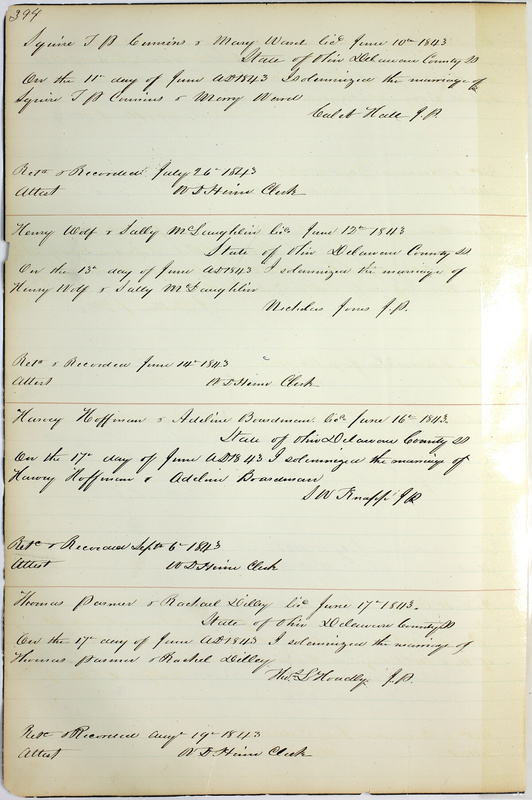 394
Squire T B Cumins & Mary Ward lic June 10th 1843
State of Ohio Delaware County Ss
On the 11th day of June AD 1843 I solemnized the marriage of
Squire T B Cumins & Merry Ward
Caleb Hall J.P.
Retd & Recorded July 26th 1843
Attest W D Heim Clerk
Henry Wolf & Sally McLaughlin lic June 12th 1843
State of Ohio Delaware County Ss
On the 13th day of June AD 1843 I solemnized the marriage of
Henry Wolf & Sally McLaughlin
Nicholas Jones J.P.
Retd & Recorded June 14th 1843
Attest W D Heim Clerk
Harvey Hoffman & Adeline Boardman lic June 16th 1843.
State of Ohio Delaware County Ss
On the 17th day of June AD 1843 I solemnized the marriage of
Harvey Hoffman & Adeline Boardman
S W Knapp J P
Retd & Recorded Septr 6th 1843
Attest W D Heim Clerk
Thomas Parmer & Rachael Dilley lic June 17th 1843.
State of Ohio Delaware County Ss
On the 17th day of June AD 1843 I solemnized the marriage of
Thomas Parmer & Rachel Dilley
Thos J.P.
Retd & Recorded Augt 19th 1843
Attest W D Heim Clerk